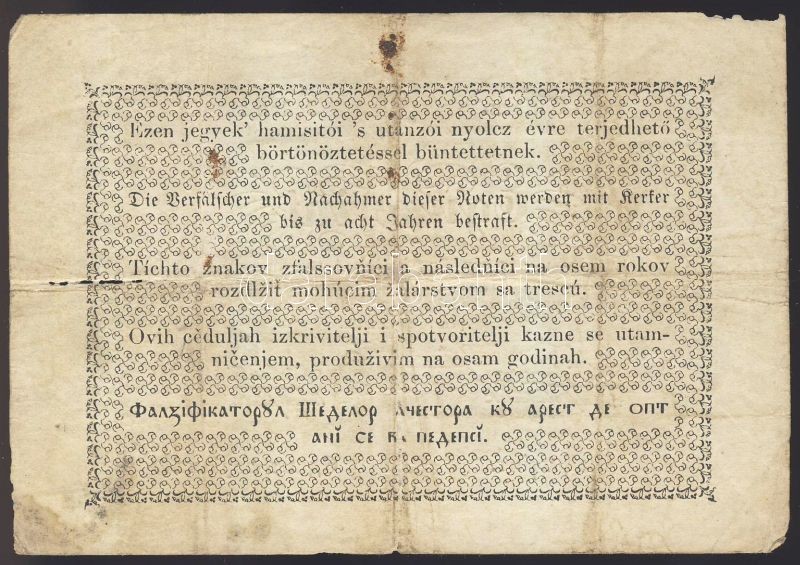 Ezen jegyek' hamisitói 's utánzói nyolcz évre terjedhető
börtönöztetéssel büntettetnek.
Die Verfälscher und Nachahmer dieser Noten werden mit Kerker
bis zu acht Jahren bestraft.
Tíchto znakov zfalssovňíci a následňíci na osem rokov
rozdlžiť mohúcim žalárstvom sa trescú.
Ovih ceduljah izkrivitelji i spotvoritelji kazne se utam-
ničenjem, produživim na osam godinah.
Фалзіфікаторꙋл Шеделор ачестора кꙋ арест де опт
анї се ва педепсі.